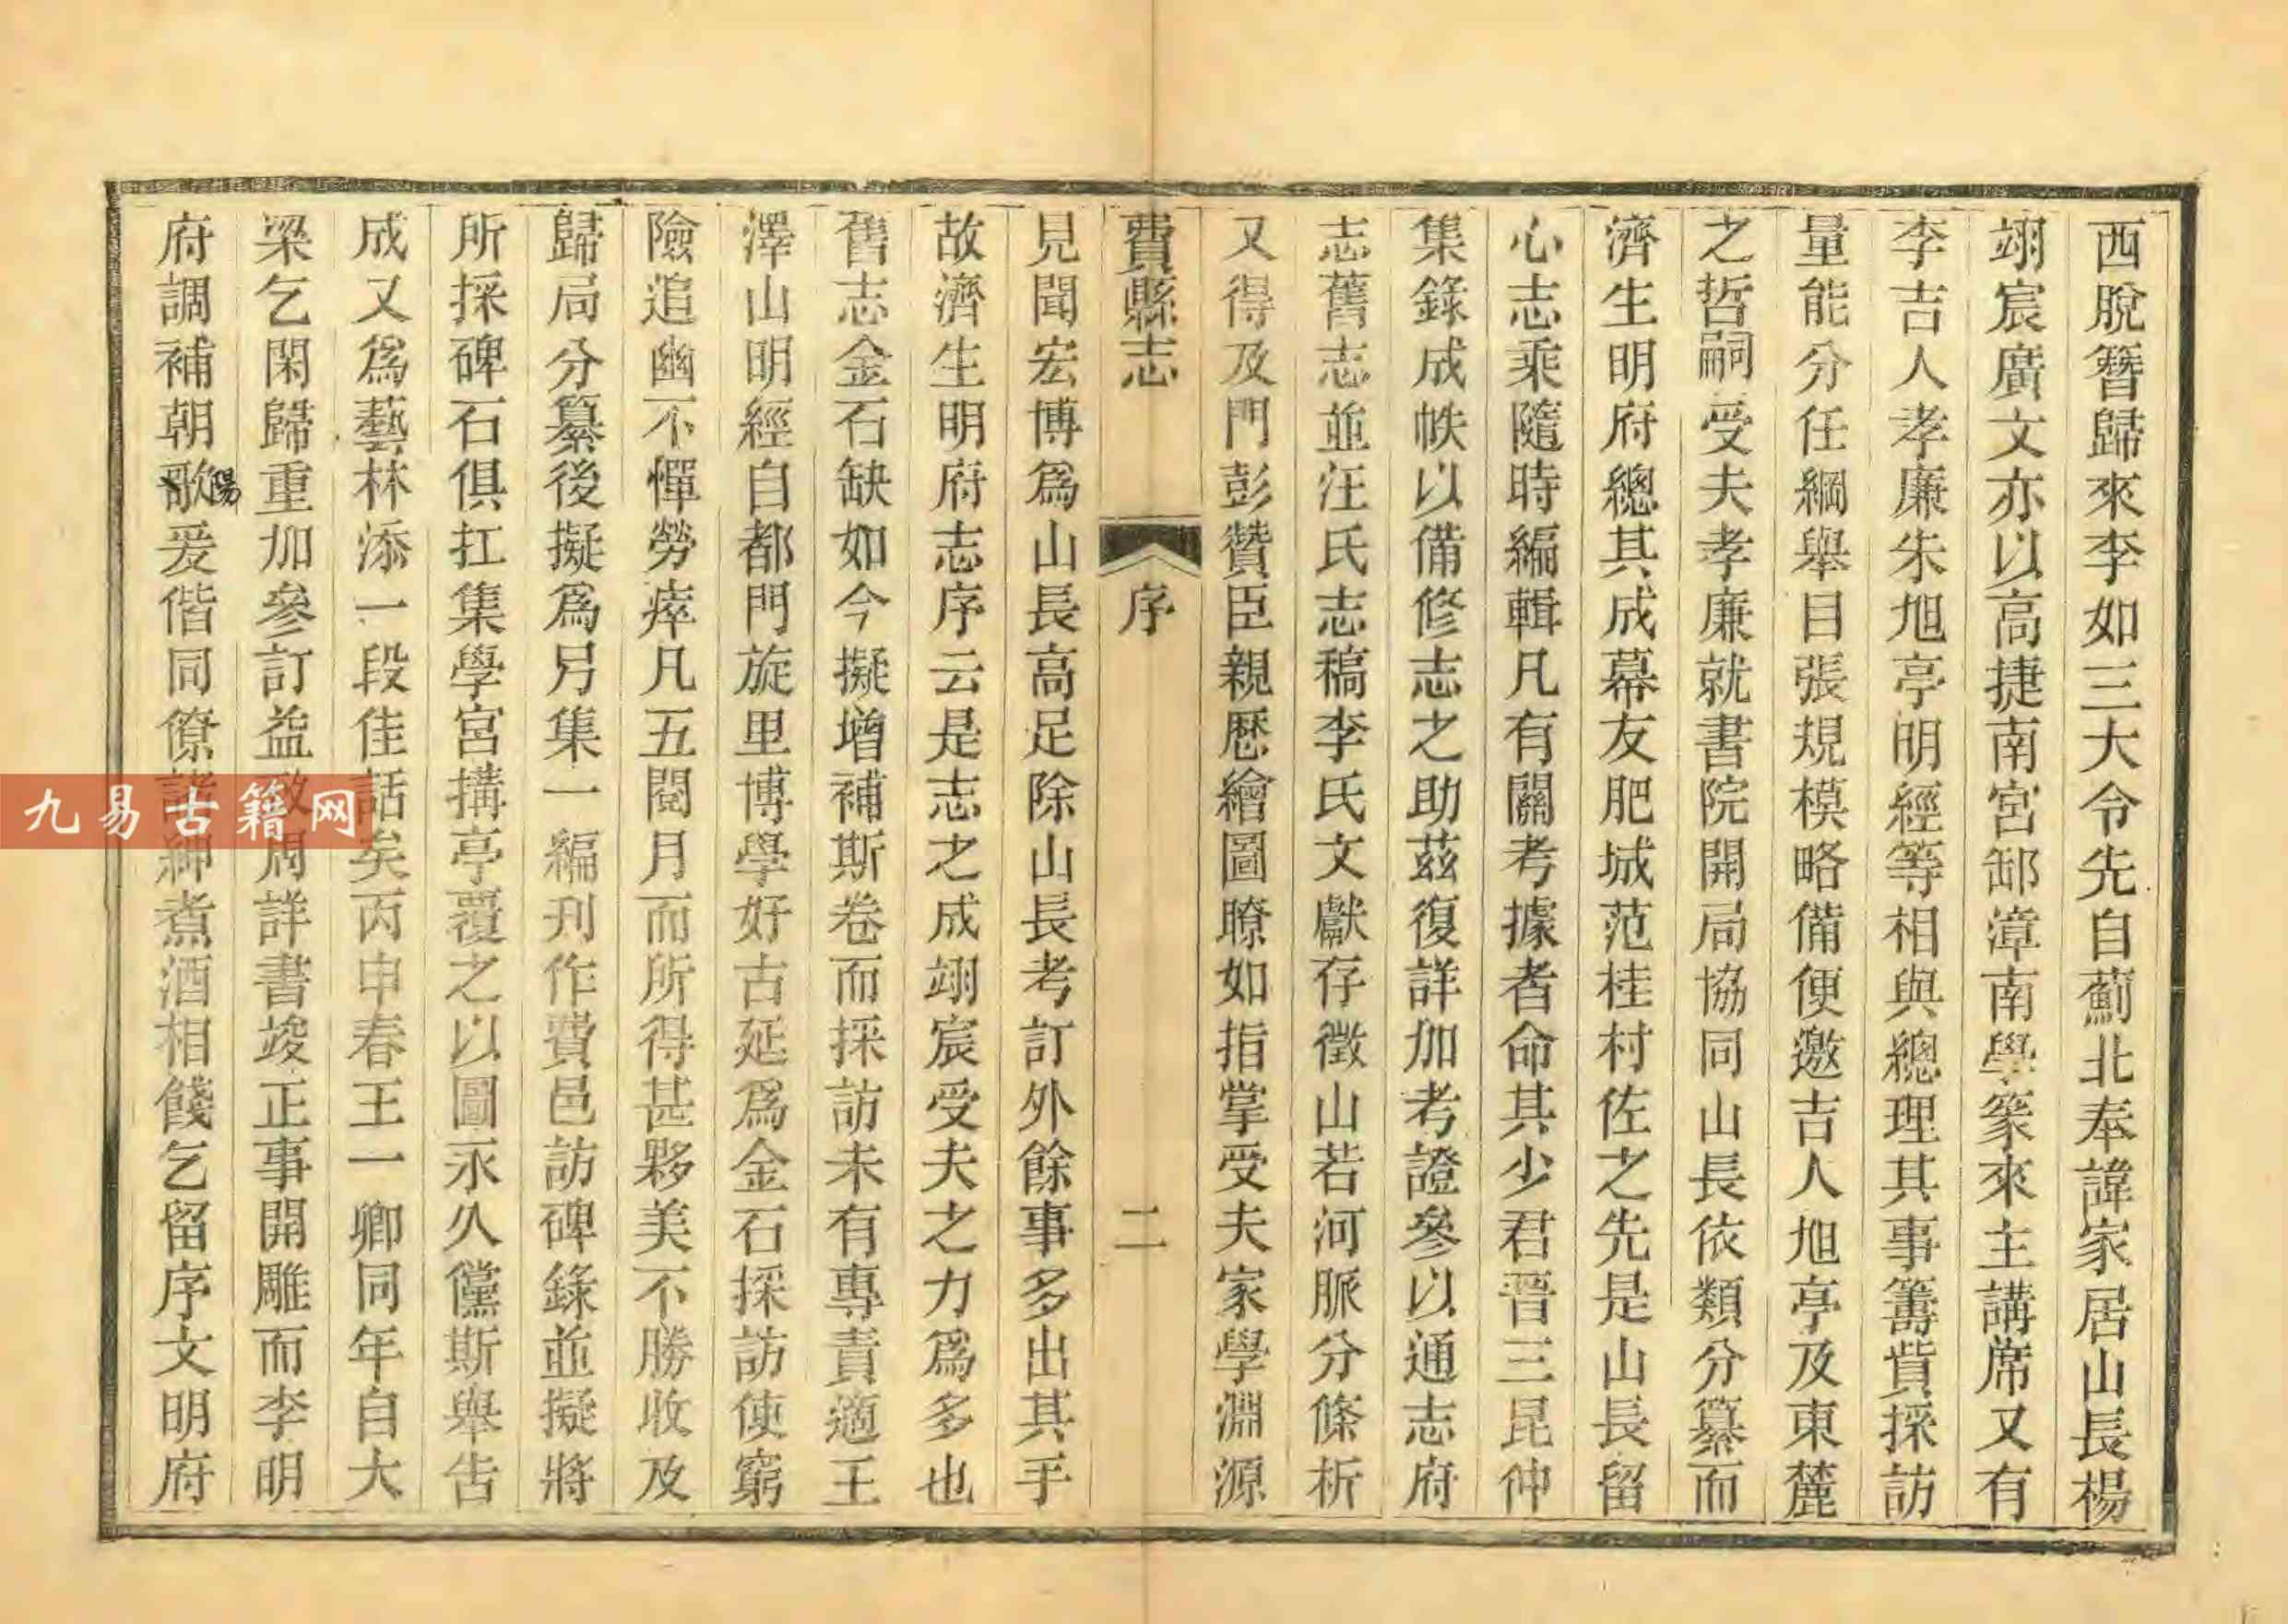 西脫簪歸來李如三大令先自薊北奉諱家居山長楊
翊宸廣文亦以高捷南宮卸漳南學篆來主講席又有
李吉人孝廉朱旭亭明經等相與總理其事籌貲採訪
量能分任綱舉目張規模略備便邀吉人旭亭及東麓
之哲嗣受夫孝廉就書院開局協同山長依類分纂而
濟生明府總其成幕友肥城范桂村佐之先是山長留
心志乘隨時編輯凡有關考據者命其少君晋三昆仲
集錄成帙以備修志之助茲復詳加考證參以通志府
志舊志並汪氏志稿李氏文獻存徵山若河脈分條析
又得及門彭贊臣親歷繪圖瞭如指掌受夫家學淵源
費縣志 序 二
見聞宏博爲山長高足除山長考訂外餘事多出其手
故濟生明府志序云是志之成翊宸受夫之力爲多也
舊志金石缺如今擬增補斯卷而採訪未有專責適王
澤山明經自都門旋里博學好古延爲金石採訪使窮
險追幽不憚勞瘁凡五閱月而所得甚夥美不勝收及
歸局分纂後擬爲另集一編刋作費邑訪碑錄並擬將
所採碑石俱扛集學宮搆亭覆之以圖永久儻斯舉告
成又爲藝林添一段佳話矣丙申春王一卿同年自大
梁乞閑歸重加參訂益周詳書竣正事開雕而李明
府調補朝歌陽爰偕同僚諸紳煮酒相餞乞留序文明府
九易古籍网